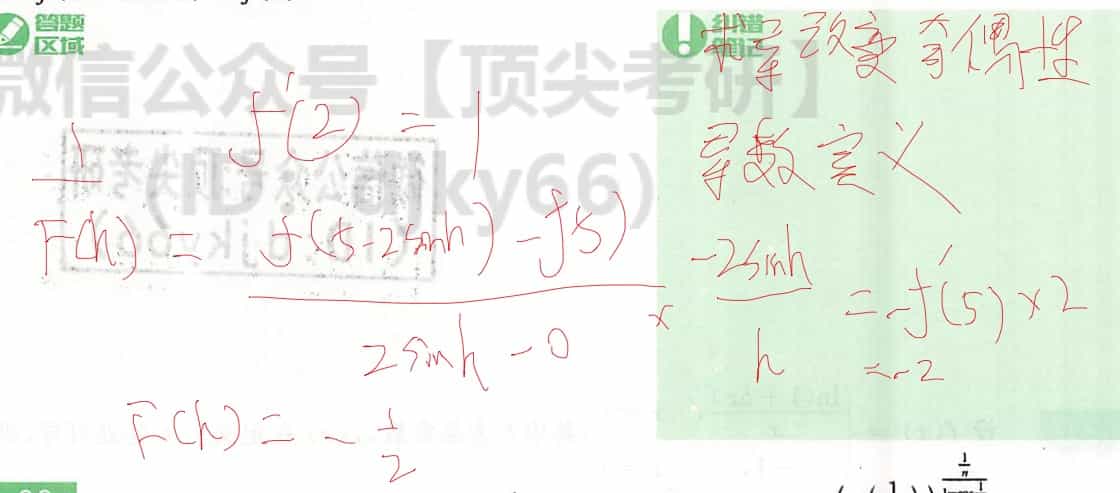 答题
区域
纠错
笔记
微信公众号【顶尖考研】
(ID: djky66)
f'(2) = 1
1/F(h) = (f(5-2sinh) - f(5))/(2sinh - 0) × (-2sinh)/h = -f'(5)×2
= -2
F(h) = -1/2
求导改变奇偶性
导数定义